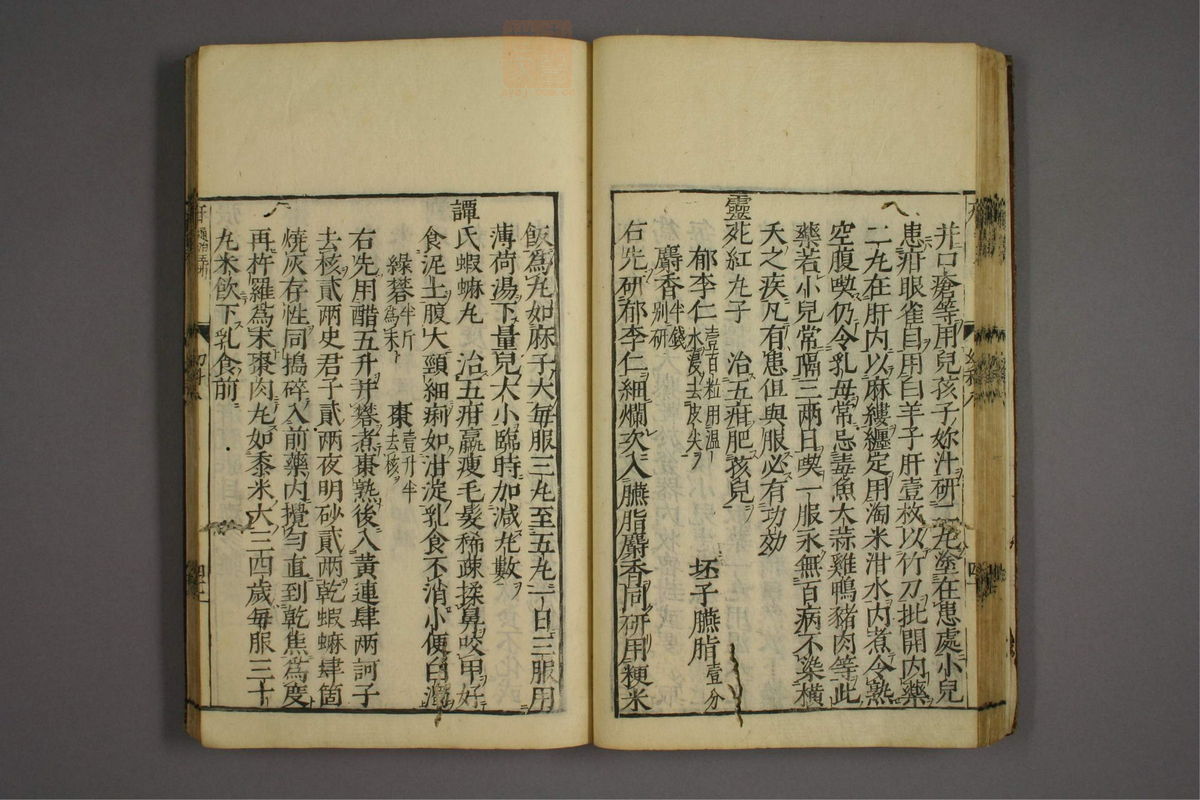 并口瘡等用兒孩子妳汁研一丸塗在患處小兒
患疳眼雀目用白羊子肝壹枚以竹刀批開内藥
二丸在肝内以麻縷纒定用淘米泔水内煮令熟
空腹喫仍令乳母常忌毒魚大蒜雞鴨豬肉等此
藥若小兒常隔三兩日喫一服永無百病不染橫
夭之疾凡有患但與服必有功効
靈死紅丸子 治五疳肥孩兒
郁李仁壹百粒用温水浸去皮尖 坯子臙脂壹分
麝香半錢別研
右先研郁李仁細爛次入臙脂麝香同研用粳米
飯為丸如麻子大每服三丸至五丸一日三服用
薄荷湯下量兒大小臨時加減丸數
譚氏蝦蟆丸 治五疳羸瘦毛髮稀疎揉鼻咬甲好
食泥土腹大頸細痢如泔淀乳食不消小便白濁
綠礬半斤為末 棗壹升半去核
右先用醋五升并礬煮棗熟後入黄連肆兩訶子
去核貳兩史君子貳兩夜明砂貳兩乾蝦蟆肆箇
燒灰存性同搗碎入前藥内攪匀直到乾焦為度
再杵羅為末棗肉丸如黍米大三四歲每服三十
丸米飲下乳食前